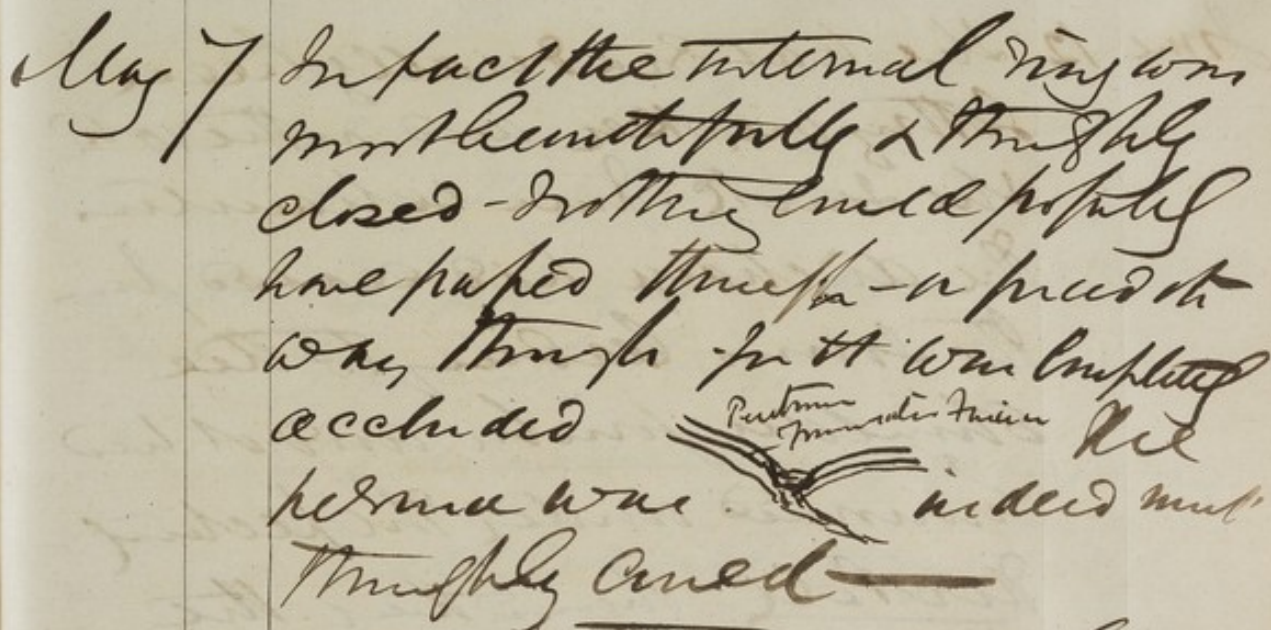 May 7 In fact the internal ring was
most beautifully & thoroughly
closed - Nothing could possibly
have passed through - or forced its
way through - for it was completely
occluded
Peritoneum
Transversalis Fascia
The
hernia was indeed most
thoroughly cured —